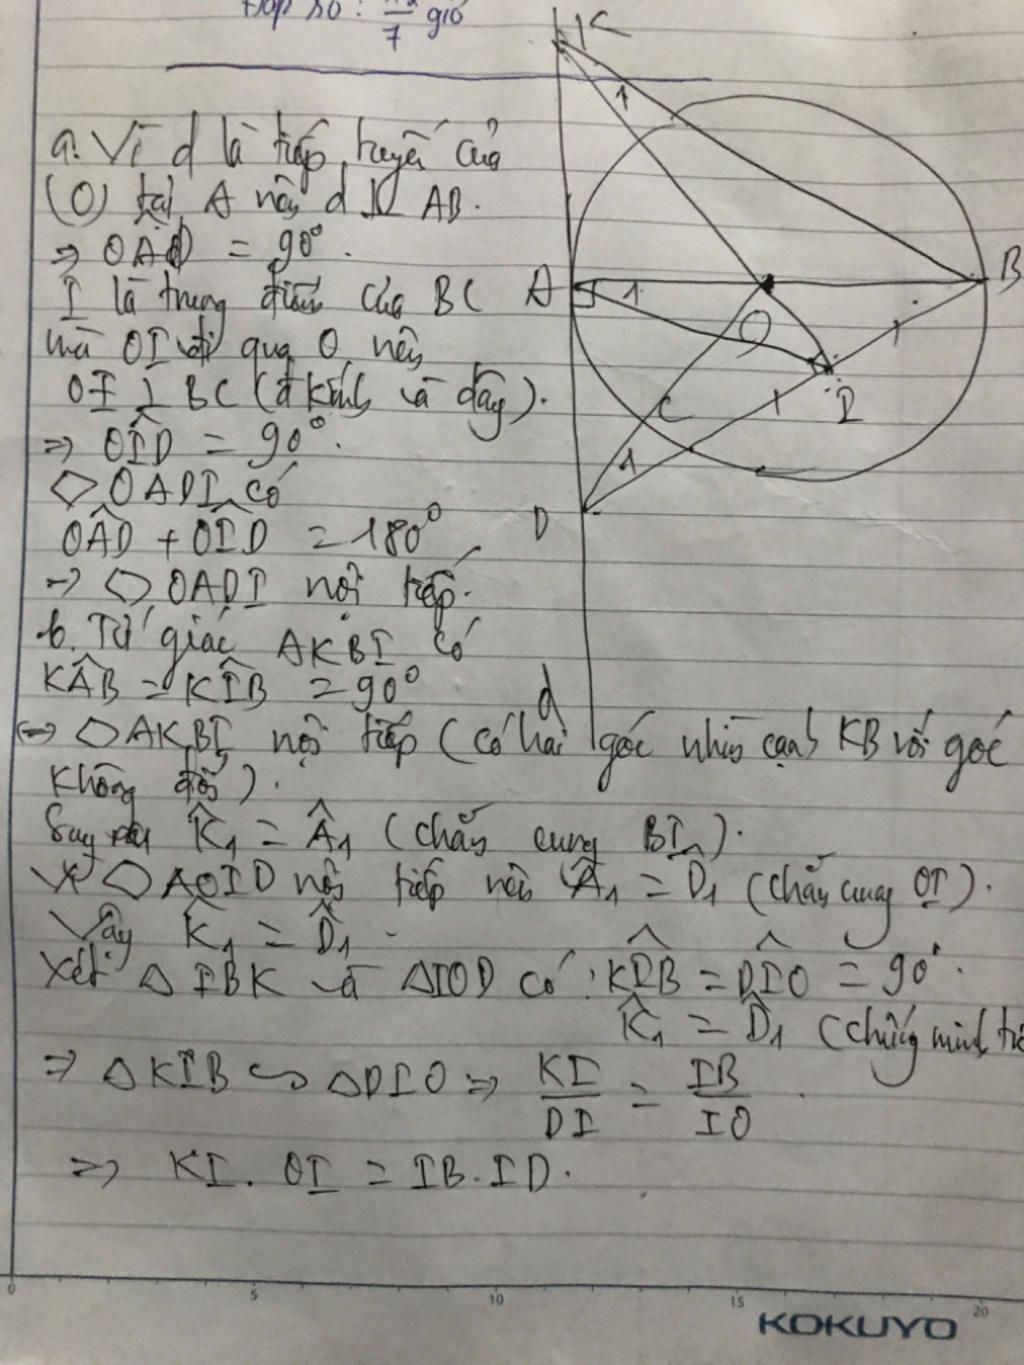 Đáp số : 12/7 giờ
a. Vì d là tiếp tuyến của
(O) tại A nên d ⊥ AB.
⇒ OAD = 90°.
I là trung điểm của BC
mà OI đi qua O nên
OI ⊥ BC (đ kính và dây).
⇒ OÎD = 90°.
◇ OADI có
OÂD + OÎD = 180°
⇒ ◇ OADI nội tiếp.
b. Tứ giác AKBI có
KÂB = KÎB = 90°
⇒ ◇ AKBI nội tiếp (có hai góc nhìn cạnh KB với góc
không đổi).
Suy ra K̂1 = Â1 (chắn cung BI).
Vì ◇ AOID nội tiếp nên Â1 = D̂1 (chắn cung OI).
Vậy K̂1 = D̂1.
Xét △ IBK và △IOD có : KÎB = DÎO = 90°.
K̂1 = D̂1 (chứng minh
⇒ △ KIB ∽ △DIO ⇒ KI/DI = IB/IO.
⇒ KI. OI = IB.ID.
K
1
A
1
B
O
I
C
1
D
d
0 5 10 15 20
KOKUYO